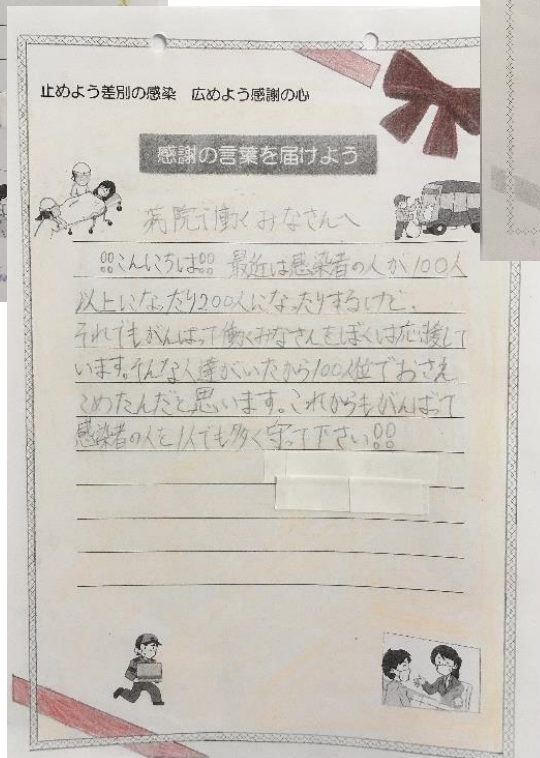 止めよう差別の感染　広めよう感謝の心
感謝の言葉を届けよう
病院で働くみなさんへ
!!こんにちは!! 最近は感染者の人が100人
以上になったり200人になったりするけど、
それでもがんばって働くみなさんをぼくは応援して
います。そんな人達がいたから100人位でおさえ
こめたんだと思います。これからもがんばって
感染者の人を1人でも多く守って下さい!!